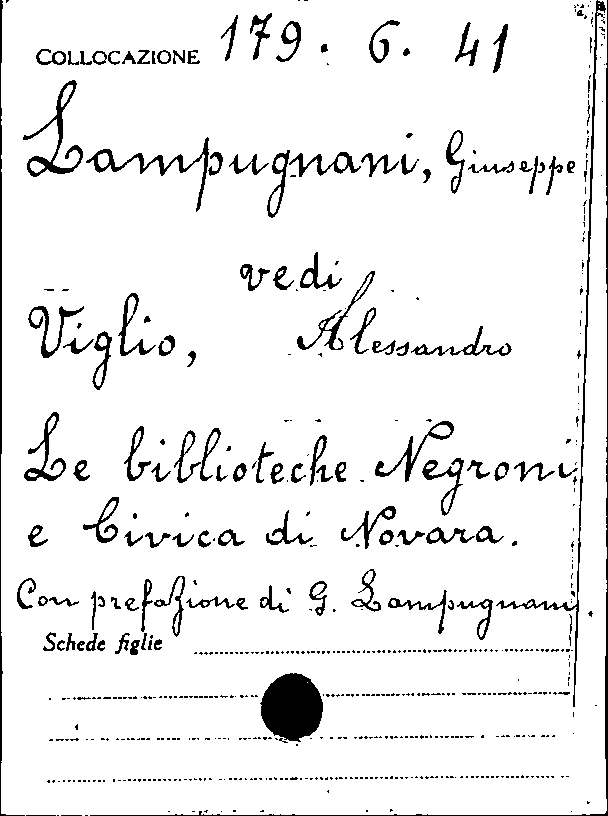 COLLOCAZIONE 179. 6. 41
Lampugnani, Giuseppe
vedi
Viglio, Alessandro
Le biblioteche Negroni
e Civica di Novara.
Con prefazione di G. Lampugnani.
Schede figlie